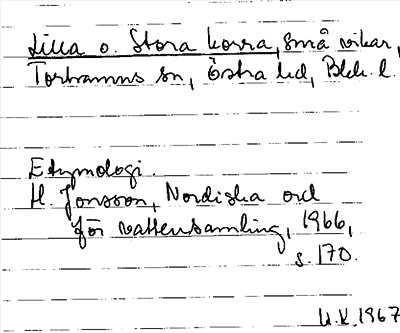 Lilla o. Stora korra, små vikar,
Torhamns sn, Östra hd, Blek. l.
Etymologi.
H. Jonsson, Nordiska ord
för vattensamling, 1966,
s. 170.
U.K. 1967